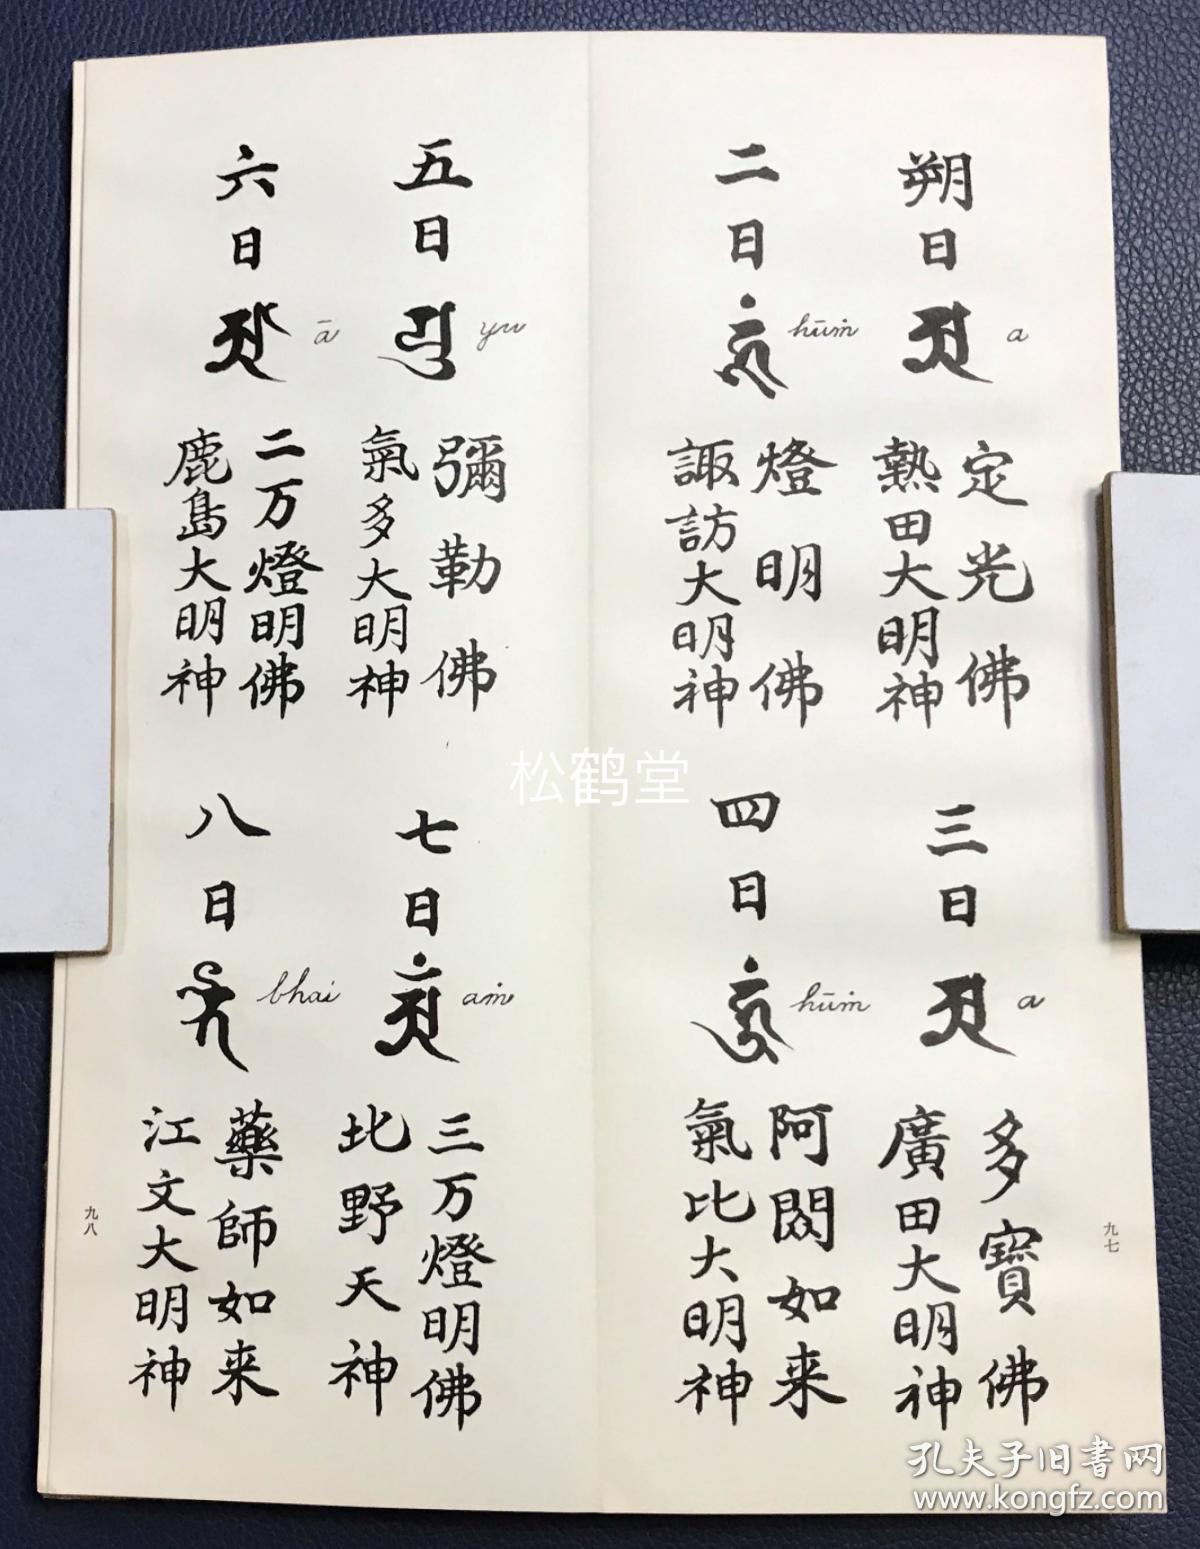 朔日
a
定光佛
熱田大明神
二日
hūṁ
燈明佛
諏訪大明神
三日
a
多寶佛
廣田大明神
四日
hūṁ
阿閦如来
氣比大明神
九七
五日
yu
彌勒佛
氣多大明神
六日
ā
二万燈明佛
鹿島大明神
七日
aṁ
三万燈明佛
北野天神
八日
bhai
藥師如来
江文大明神
九八
松鹤堂
孔夫子旧书网
www.kongfz.com